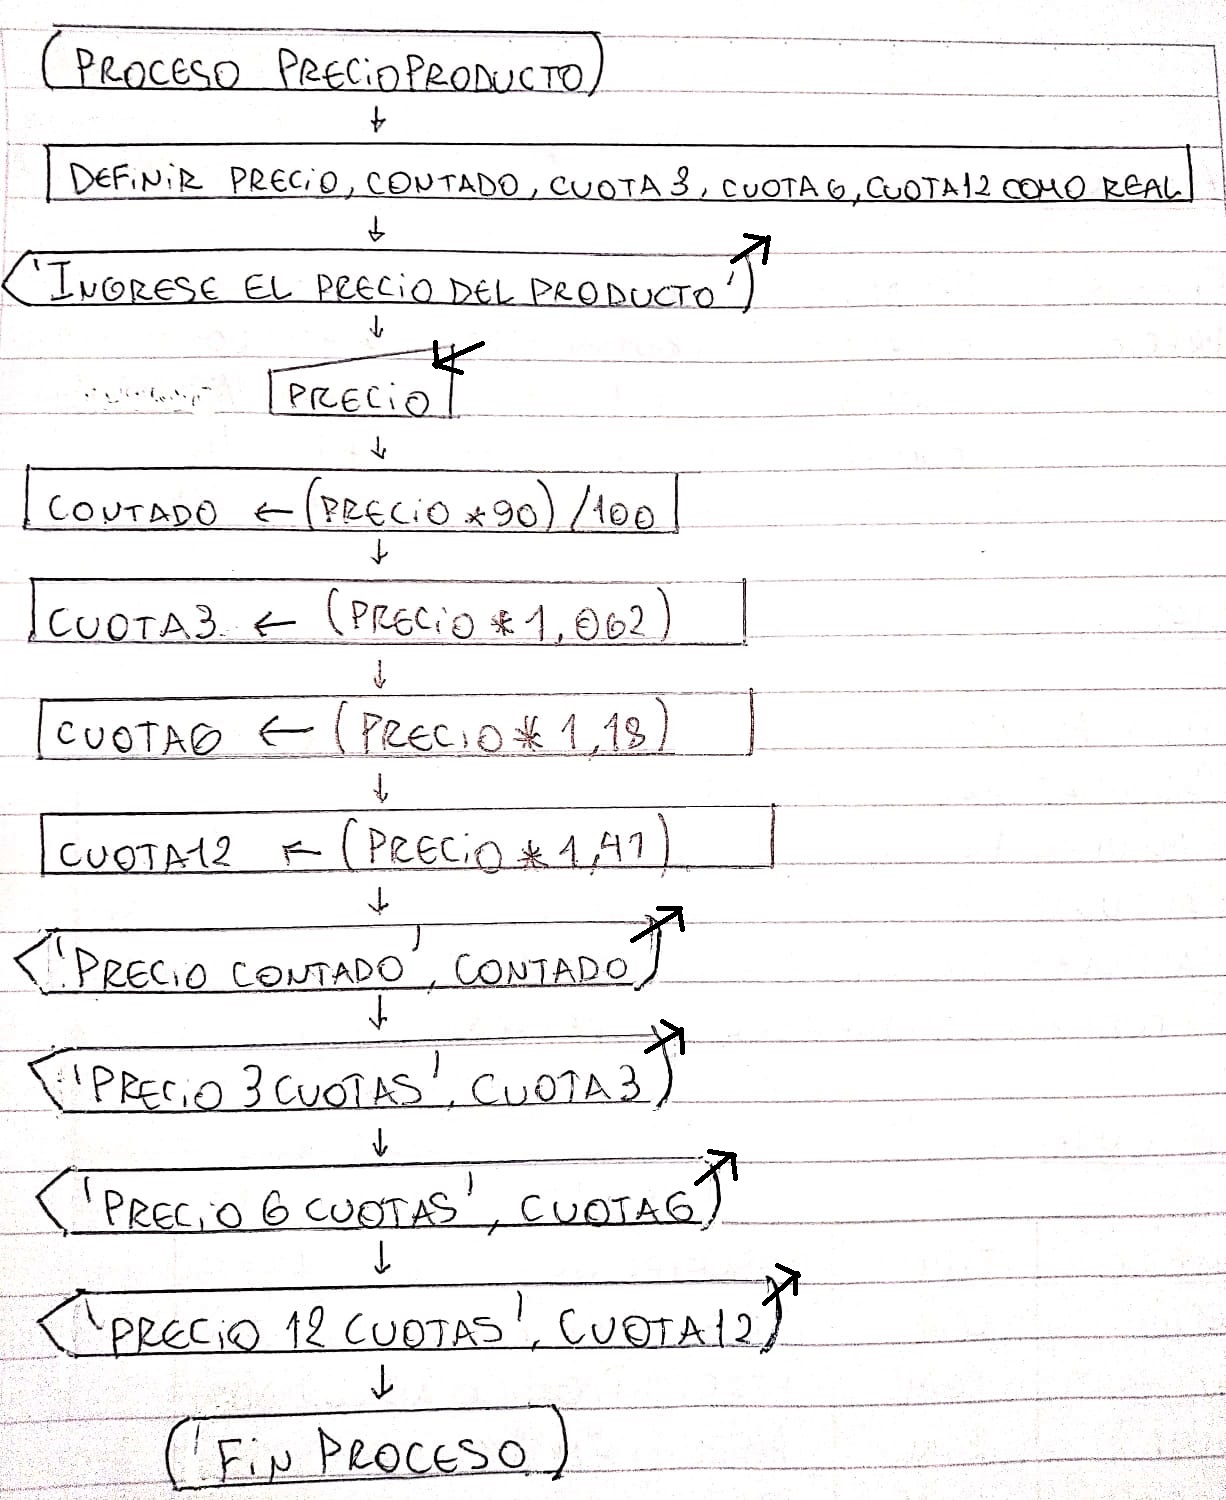 PROCESO PRECIOPRODUCTO
DEFINIR PRECIO, CONTADO, CUOTA3, CUOTA6, CUOTA12 COMO REAL
'INGRESE EL PRECIO DEL PRODUCTO'
PRECIO
CONTADO ← (PRECIO *90) /100
CUOTA3 ← (PRECIO * 1,062)
CUOTA6 ← (PRECIO * 1,18)
CUOTA12 ← (PRECIO * 1,41)
'PRECIO CONTADO', CONTADO
'PRECIO 3 CUOTAS', CUOTA3
'PRECIO 6 CUOTAS', CUOTA6
'PRECIO 12 CUOTAS', CUOTA12
FIN PROCESO